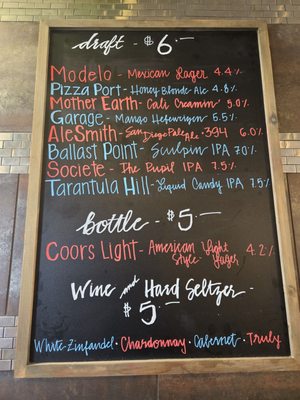 draft - $6.—
Modelo - Mexican Lager 4.4%
Pizza Port - Honey Blonde Ale 4.8%
Mother Earth - Cali Creamin' 5.0%
Garage - Mango Hefeweizen 5.5%
AleSmith - San Diego Pale Ale .394 6.0%
Ballast Point - Sculpin IPA 7.0%
Societe - The Pupil IPA 7.5%
Tarantula Hill - Liquid Candy IPA 7.5%
bottle - $5.—
Coors Light - American Light Style Lager 4.2%
Wine and Hard Seltzer -
$5.—
White-Zinfandel · Chardonnay · Cabernet · Truly